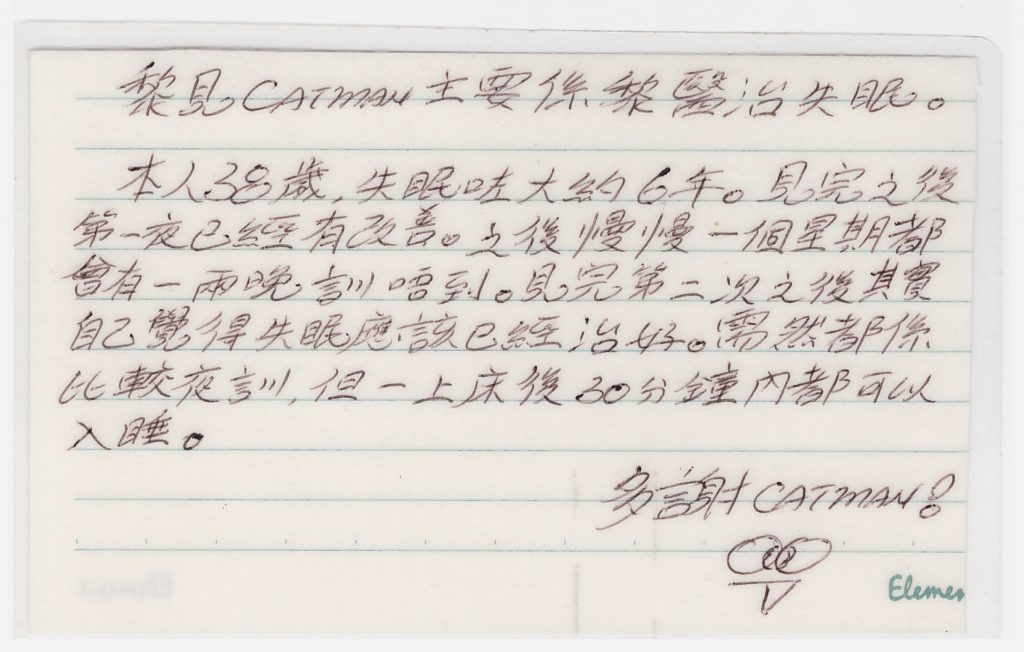 黎見CATMAN主要係黎醫治失眠。
本人38歲,失眠咗大約6年。見完之後
第一夜已經有改善。之後慢慢一個星期都
會有一兩晚訓唔到。見完第二次之後其實
自己覺得失眠應該已經治好。需然都係
比較夜訓,但一上床後30分鐘內都可以
入睡。
多謝CATMAN!
Elemen